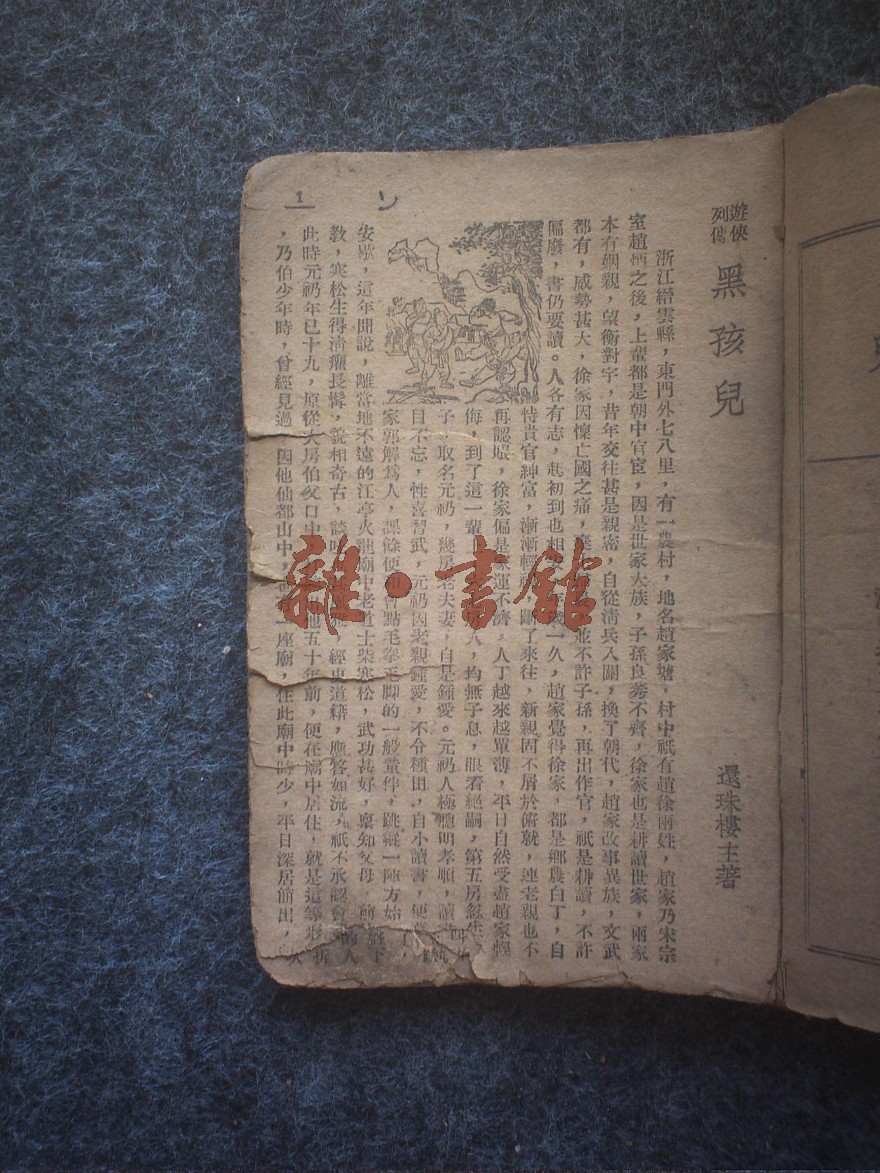 遊俠
列傳
黑孩兒
還珠樓主著
浙江縉雲縣，東門外七八里，有一農村，地名趙家塘，村中祇有趙徐兩姓，趙家乃宋宗
室趙之後，上輩都是朝中官宦，因是世家大族，子孫良莠不齊，徐家也是耕讀世家，兩家
本有姻親，望衡對宇，昔年交往甚是親密，自從清兵入關，換了朝代，趙家改事異族，文武
都有，威勢甚大，徐家因懷亡國之痛，並不許子孫，再出作官，祇是耕讀，不許
偏廢，書仍要讀。人各有志，起初到也相一久，趙家覺得徐家，都是鄉農白丁，自
恃貴官紳富，漸漸輕斷了來往，新親固不屑於俯就，連老親也不
再認娛，徐家偏是運不濟。人丁越來越單薄，平日自然受盡趙家輕
侮，到了這一輩人，均無子息，眼看絕嗣，第五房忽生
子，取名元礽，幾房老夫妻，自是鍾愛。元礽人極聰明孝順，讀
目不忘，性喜習武，元礽因老親鍾愛，不令種田，自小讀書，便
家郭解爲人，課餘便和會點毛拳毛脚的一般童伴，跳縱一陣方始
安歇，這年聞說，離當地不遠的江亭火龍廟中老道士柴寒松，武功甚好，稟知父母，前
教，寒松生得清癯長髯，貌相奇古，談經史道籍，應答如流，祇不承認會的人
此時元礽年已十九，原從大房伯父口中他五十年前，便在廟中居住，就是這等形
，乃伯少年時，曾經見過，因他仙都山中，一座廟，住此廟中時少，平日深居簡出，人
1
雜·書館